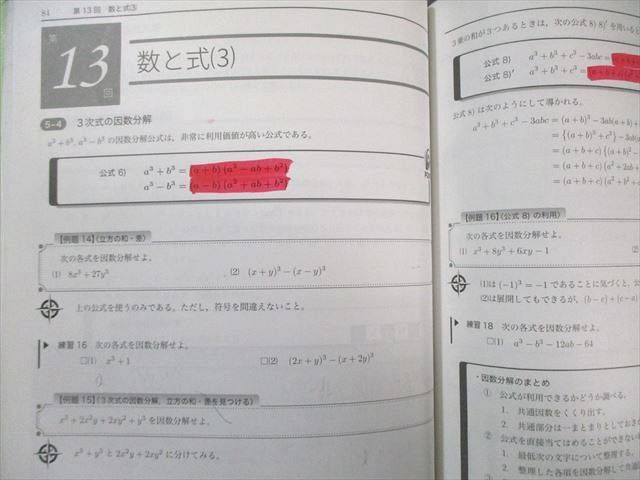 84 第13回 数と式③
第
13
回
数と式(3)
5-4 3次式の因数分解
a³+b³, a³−b³ の因数分解公式は、非常に利用価値が高い公式である。
公式 6) a³+b³=(a+b)(a²−ab+b²)
a³−b³=(a−b)(a²+ab+b²)
【例題 14】(立方の和・差)
次の各式を因数分解せよ。
(1) 8x³+27y³ (2) (x+y)³−(x−y)³
上の公式を使うのみである。ただし、符号を間違えないこと。
練習 16 次の各式を因数分解せよ。
□(1) x³+1 □(2) (2x+y)³−(x+2y)³
【例題 15】(3次式の因数分解、立方の和・差を見つける)
x³+2x²y+2xy²+y³ を因数分解せよ。
x³+y³ と 2x²y+2xy² に分けてみる。
3乗の和が3つあるときは、次の公式 8) 8)′ を用いると
公式 8) a³+b³+c³−3abc=(a+b+
公式 8)′ a³+b³+c³=(a+b+c)
公式 8) は次のようにして導かれる。
a³+b³+c³−3abc=(a+b)³−3ab(a+b)+
={(a+b)³+c³}−3ab(
=(a+b+c){(a+b)²−
=(a+b+c)(a²+2ab+
=(a+b+c)(a²+b²+
【例題 16】(公式 8) の利用)
次の各式を因数分解せよ。
(1) x³+8y³+6xy−1 (2)
(1)は (−1)³=−1 であることに気づくと、公
(2)は展開してもできるが、(b−c)+(c−a)
練習 18 次の各式を因数分解せよ。
□(1) a³−b³−12ab−64
・因数分解のまとめ
① 公式が利用できるかどうか調べる。
1. 共通因数をくくり出す。
2. 共通部分は一まとまりとしておき
② 公式を直接当てはめることができない
1. 最低次の文字について整理する。
2. 整理した各項を因数分解して共通